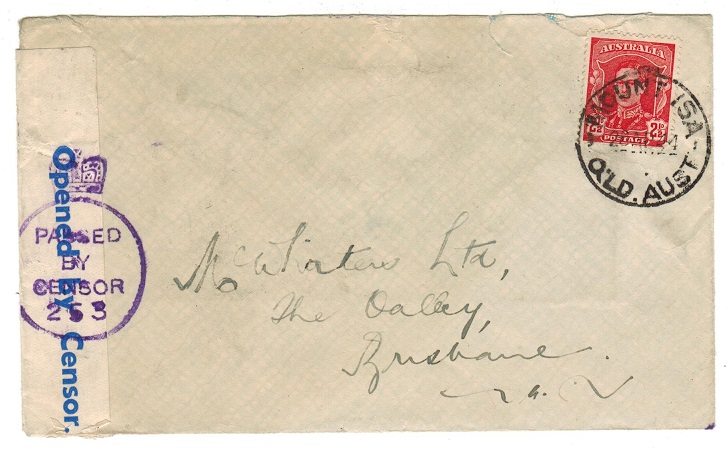 AUSTRALIA
2½d 2½d
POSTAGE
MOUNT ISA
QLD. AUST
Opened by Censor.
PASSED
BY
CENSOR
253
McWhirters Ltd,
The Valley,
Brisbane.